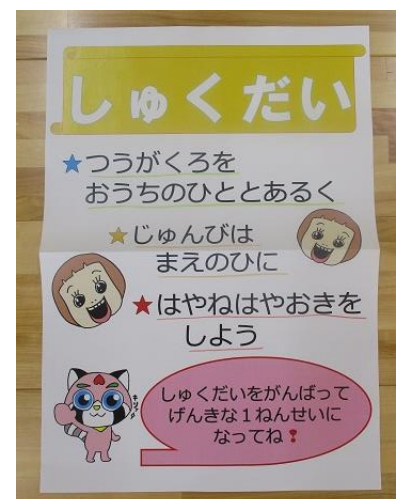 しゅくだい
★つうがくろを
おうちのひととあるく
★じゅんびは
まえのひに
★はやねはやおきを
しよう
しゅくだいをがんばって
げんきな１ねんせいに
なってね❢